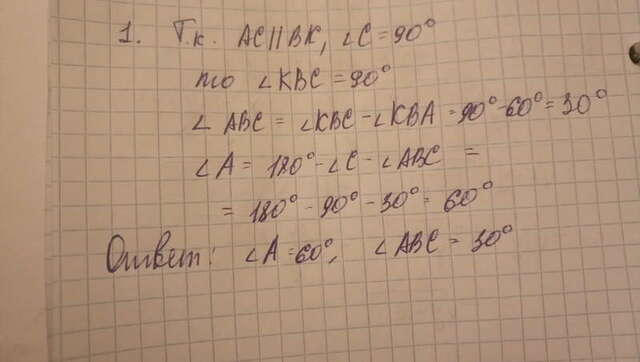 1. Т.к. AC || BK, ∠C = 90°
то ∠KBC = 90°
∠ABC = ∠KBC - ∠KBA = 90° - 60° = 30°
∠A = 180° - ∠C - ∠ABC =
= 180° - 90° - 30° = 60°
Ответ: ∠A = 60°, ∠ABC = 30°